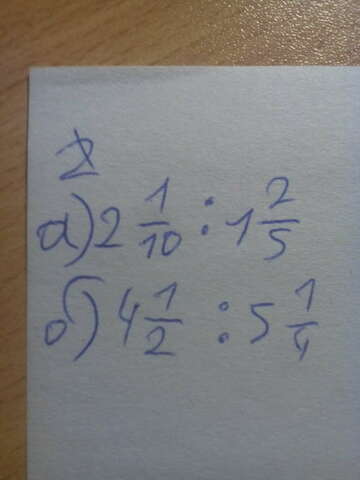 2
а) 2 1/10 : 1 2/5
б) 4 1/2 : 5 1/4